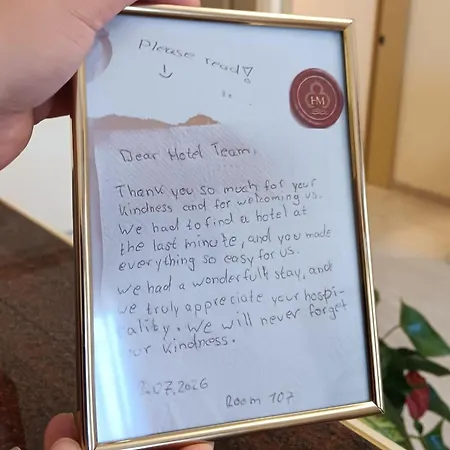 Please read!
HM
Dear Hotel Team,
Thank you so much for your
kindness and for welcoming us.
We had to find a hotel at
the last minute, and you made
everything so easy for us.
We had a wonderfull stay, and
we truly appreciate your hospi-
ality. We will never forget
our kindness.
2.07.2026
Room 107